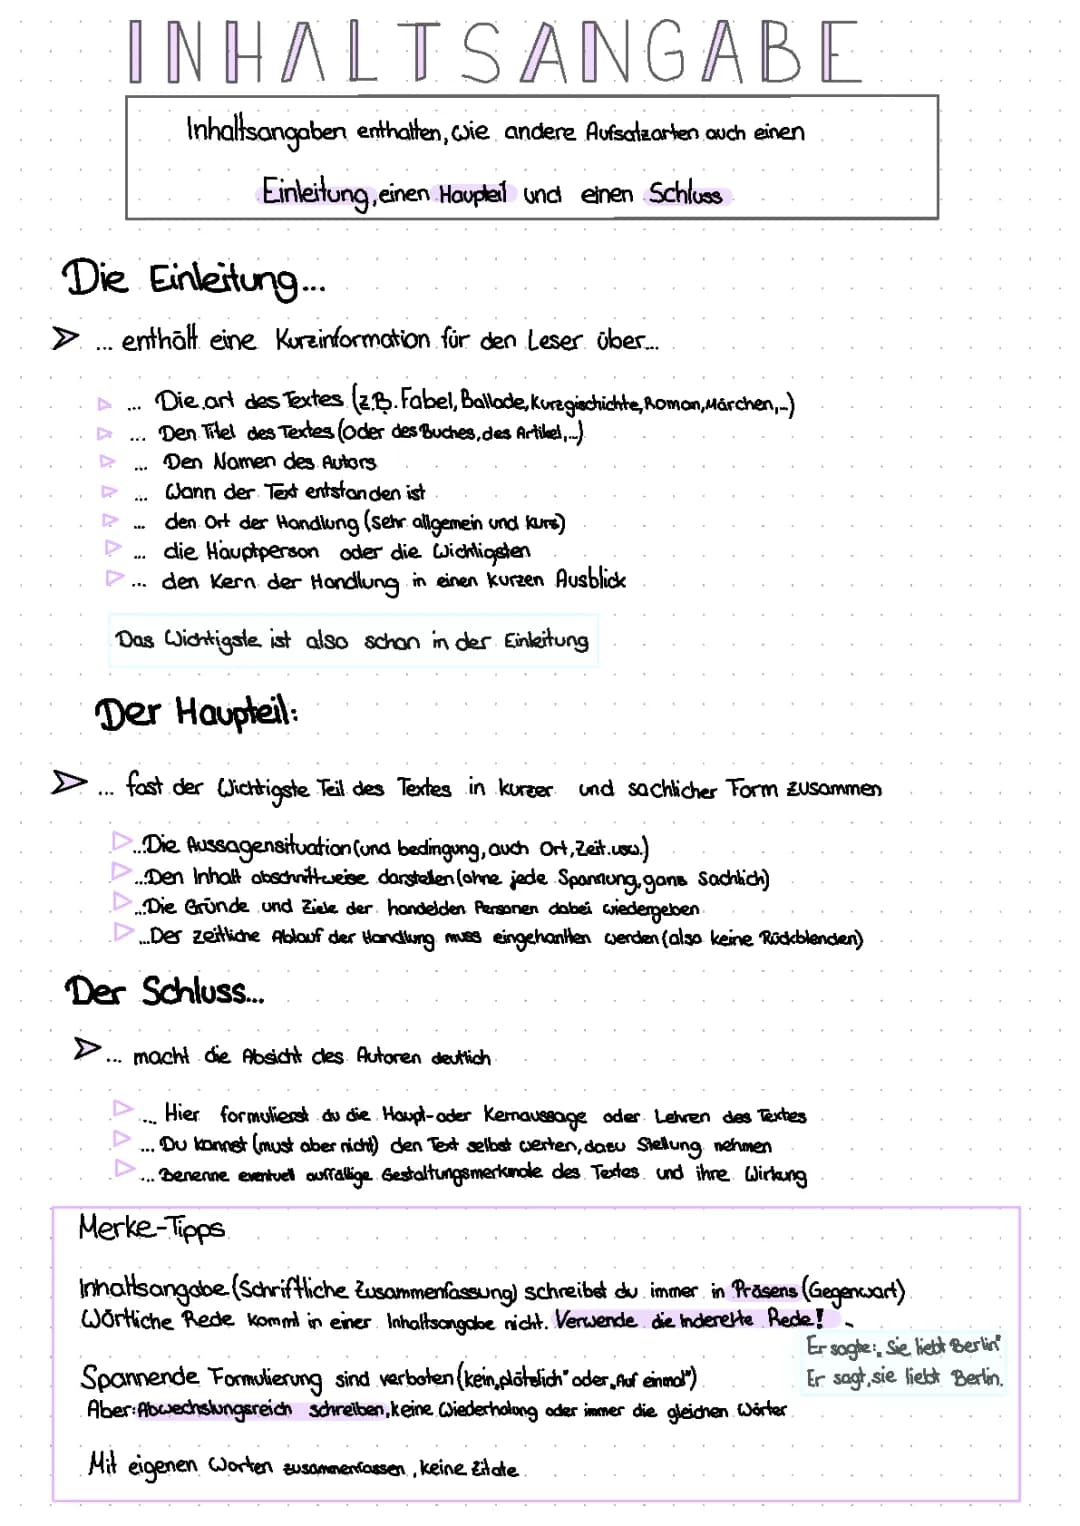 INHALTSANGABE
Inhaltsangaben enthalten, wie andere Aufsatzarten auch einen
Einleitung, einen Haupteil und einen Schluss
Die Einleitung...
... enthält eine Kurzinformation für den Leser über...
... Die art des Textes (z.B. Fabel, Ballade, Kurzgischichte, Roman, Märchen,...)
... Den Titel des Textes (oder des Buches, des Artikel,...)
... Den Namen des Autors
... Wann der Text entstanden ist
... den Ort der Handlung (sehr allgemein und kurs)
... die Hauptperson oder die Wichtigsten
... den Kern der Handlung in einen kurzen Ausblick
Das Wichtigste ist also schon in der Einleitung
Der Haupteil:
... fast der Wichtigste Teil des Textes in kurzer und sachlicher Form zusammen
...Die Aussagensituation (und bedingung, auch Ort, Zeit.usw.)
...Den Inhalt abschnittweise darstellen (ohne jede Spannung, gans Sachlich)
...Die Gründe und Ziele der handelden Personen dabei wiedergeben
...Der zeitliche Ablauf der Handlung muss eingehanlten werden (also keine Rückblenden)
Der Schluss...
... macht die Absicht des Autoren deutlich
... Hier formulierst du die Haupt-oder Kernaussage oder Lehren des Textes
... Du kannst (must aber nicht) den Text selbst werten, dazu Stellung nehmen
... Benenne eventuell auffällige Gestaltungsmerkmale des Textes und ihre Wirkung
Merke-Tipps
Inhaltsangabe (Schriftliche Zusammenfassung) schreibst du immer in Präsens (Gegenwart)
Wörtliche Rede komml in einer Inhaltsangabe nicht. Verwende die inderekte Rede!
Er sagte: „Sie liebt Berlin"
Er sagt, sie liebt Berlin.
Spannende Formulierung sind verboten (kein „plötslich" oder „Auf einmal")
Aber: Abwechslungsreich schreiben, keine Wiederholung oder immer die gleichen Wörter
Mit eigenen Worten zusammenfassen, keine Zitate